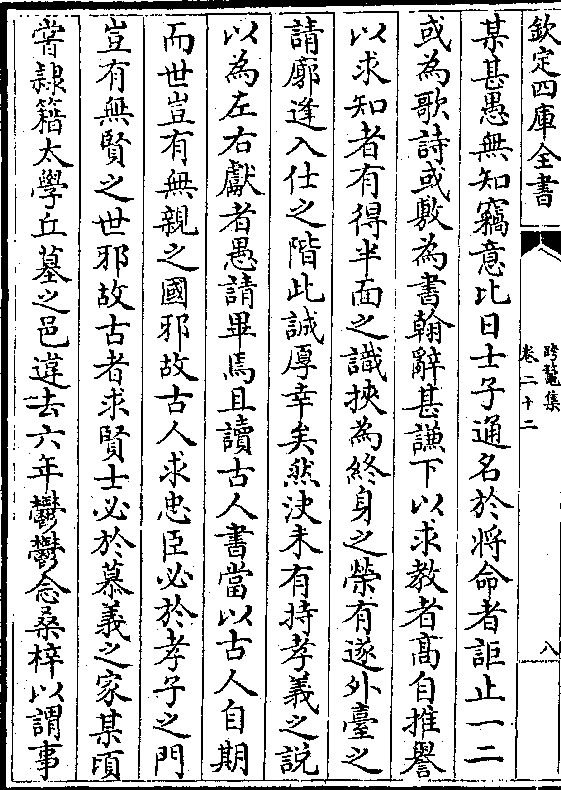 欽定四庫全書
跨鼇集
卷二十二
八
某甚愚無知竊意比日士子通名於將命者詎止一二
或為歌詩或敷為書翰辭甚謙下以求教者高自推譽
以求知者有得半面之識挾為終身之榮有遂外臺之
請廓逢入仕之階此誠厚幸矣然決未有持孝義之説
以為左右獻者愚請畢焉且讀古人書當以古人自期
而世豈有無親之國邪故古人求忠臣必於孝子之門
豈有無賢之世邪故古者求賢士必於慕義之家某頃
甞隷籍太學丘墓之邑違去六年鬱鬱念桑梓以謂事